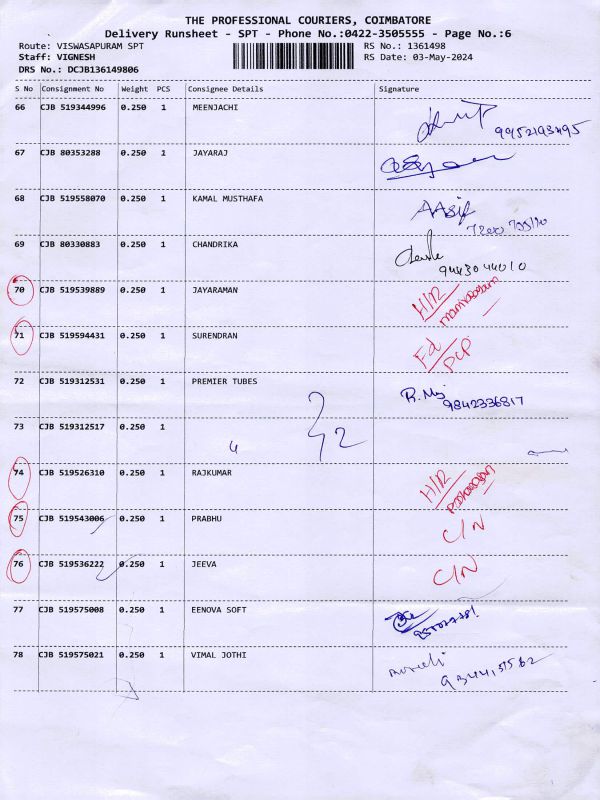 THE PROFESSIONAL COURIERS, COIMBATORE
Delivery Runsheet - SPT - Phone No.:0422-3505555 - Page No.:6
Route: VISWASAPURAM SPT
RS No.: 1361498
Staff: VIGNESH
RS Date: 03-May-2024
DRS No.: DCJB136149806
S No Consignment No Weight PCS Consignee Details Signature
66 CJB 519344996 0.250 1 MEENJACHI
67 CJB 80353288 0.250 1 JAYARAJ
68 CJB 519558070 0.250 1 KAMAL MUSTHAFA AAsif
69 CJB 80330883 0.250 1 CHANDRIKA
9443044010
70 CJB 519539889 0.250 1 JAYARAMAN H/R
71 CJB 519594431 0.250 1 SURENDRAN Fd
PCP
72 CJB 519312531 0.250 1 PREMIER TUBES
9842336817
73 CJB 519312517 0.250 1
74 CJB 519526310 0.250 1 RAJKUMAR H/R
75 CJB 519543006 0.250 1 PRABHU C/N
76 CJB 519536222 0.250 1 JEEVA C/N
77 CJB 519575008 0.250 1 EENOVA SOFT
78 CJB 519575021 0.250 1 VIMAL JOTHI